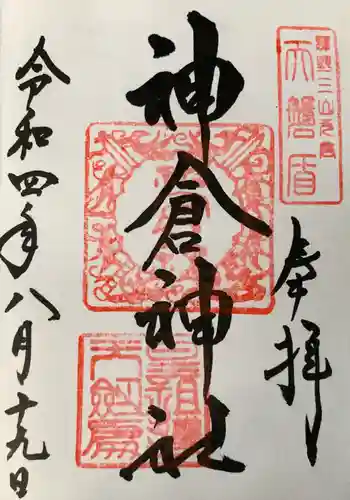 熊野三山元宮
天磐盾
奉拝
神倉神社
令和四年八月十九日